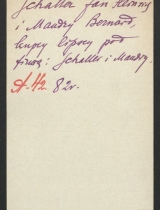 Schaller Jan Henryk
i Maudry Bernard,
kupcy lipscy pod
firmą: Schaller i Maudry.
A. 42. 82 r.